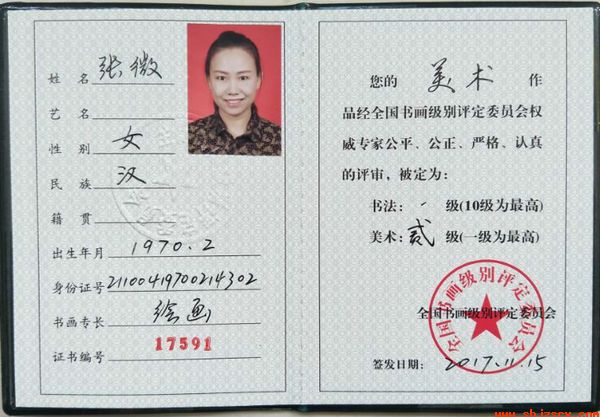 姓名 张微
艺名
性别 女
民族 汉
籍贯
出生年月 1970.2
身份证号 21100419700214302
书画专长 绘画
证书编号 17591
您的 美术 作
品经全国书画级别评定委员会权
威专家公平、公正、严格、认真
的评审，被定为：
书法： 级(10级为最高)
美术：贰 级(一级为最高)
全国书画级别评定委员会
全国书画级别评定委员会
签发日期： 2017.11.15